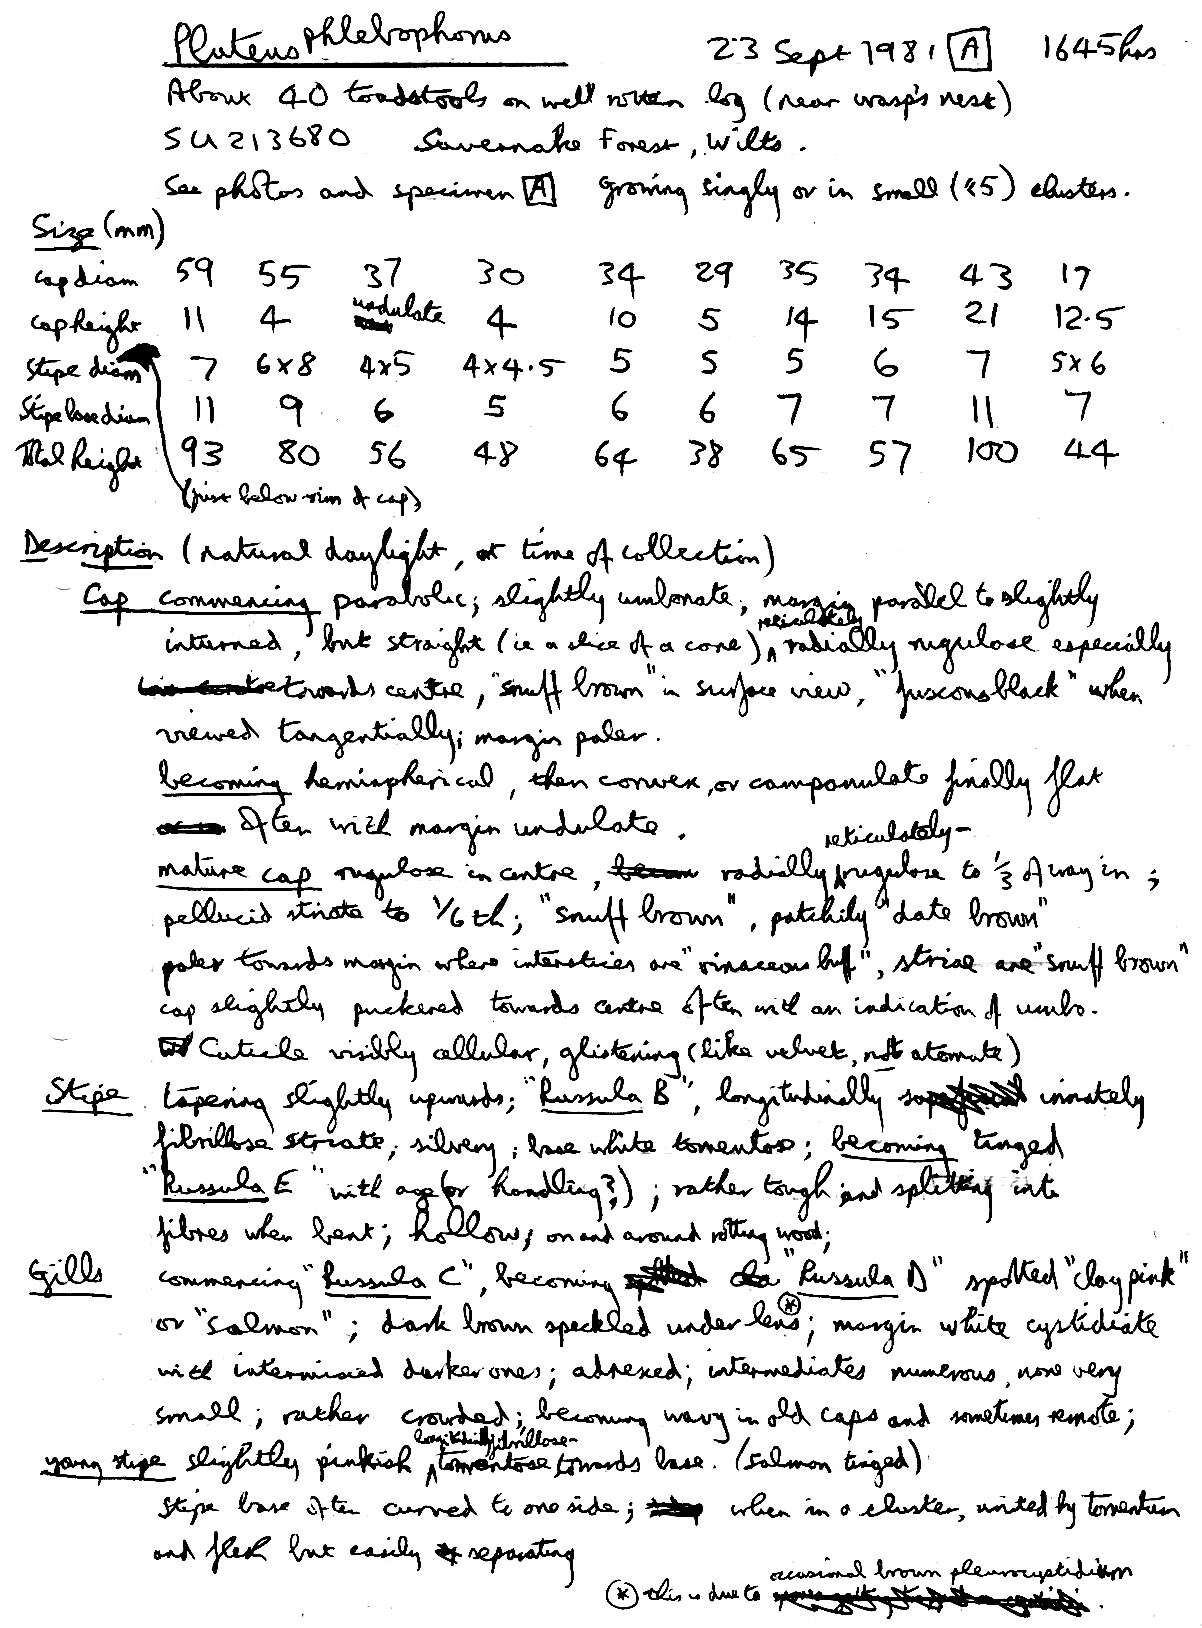 Pluteus Phlebophorus 23 Sept 1981 A 1645hrs
About 40 toadstools on well rotten log (near wasp's nest)
SU213680 Savernake Forest, Wilts.
See photos and specimen A growing singly or in small (<5) clusters.
Size (mm)
cap diam 59 55 37 30 34 29 35 34 43 17
cap height 11 4 undulate 4 10 5 14 15 21 12.5
Stipe diam 7 6x8 4x5 4x4.5 5 5 5 6 7 5x6
Stipe base diam 11 9 6 5 6 6 7 7 11 7
Total height 93 80 56 48 64 38 65 57 100 44
(just below rim of cap)
Description (natural daylight, at time of collection)
Cap commencing parabolic; slightly umbonate; margin parallel to slightly
interned, but straight (ie a slice of a cone) reticulately radially rugulose especially
towards centre, "snuff brown" in surface view, "fuscous black" when
viewed tangentially; margin paler.
becoming hemispherical, then convex, or campanulate finally flat
often with margin undulate.
mature cap rugulose in centre, radially reticulately-rugulose to 1/3 of way in;
pellucid striate to 1/6th; "snuff brown", patchily "date brown"
paler towards margin where interstices are "vinaceous buff", striae are "snuff brown"
cap slightly puckered towards centre often with an indication of umbo.
Cuticle visibly cellular, glistening (like velvet, not atomate)
Stipe tapering slightly upwards; "Russula B", longitudinally innately
fibrillose striate; silvery; base white tomentose; becoming tinged
"Russula E" with age (or handling?); rather tough and splitting into
fibres when bent; hollow; on and around rotting wood;
Gills commencing "Russula C", becoming "Russula D" spotted "clay pink"
or "salmon"; dark brown speckled under lens *; margin white cystidiate
with intermixed darker ones; adnexed; intermediates numerous, none very
small; rather crowded; becoming wavy in old caps and sometimes remote;
young stipe slightly pinkish longitudinally fibrillose-tomentose towards base. (salmon tinged)
Stipe base often curved to one side; when in a cluster, united by tomentum
and flesh but easily separating
* this is due to occasional brown pleurocystidium.